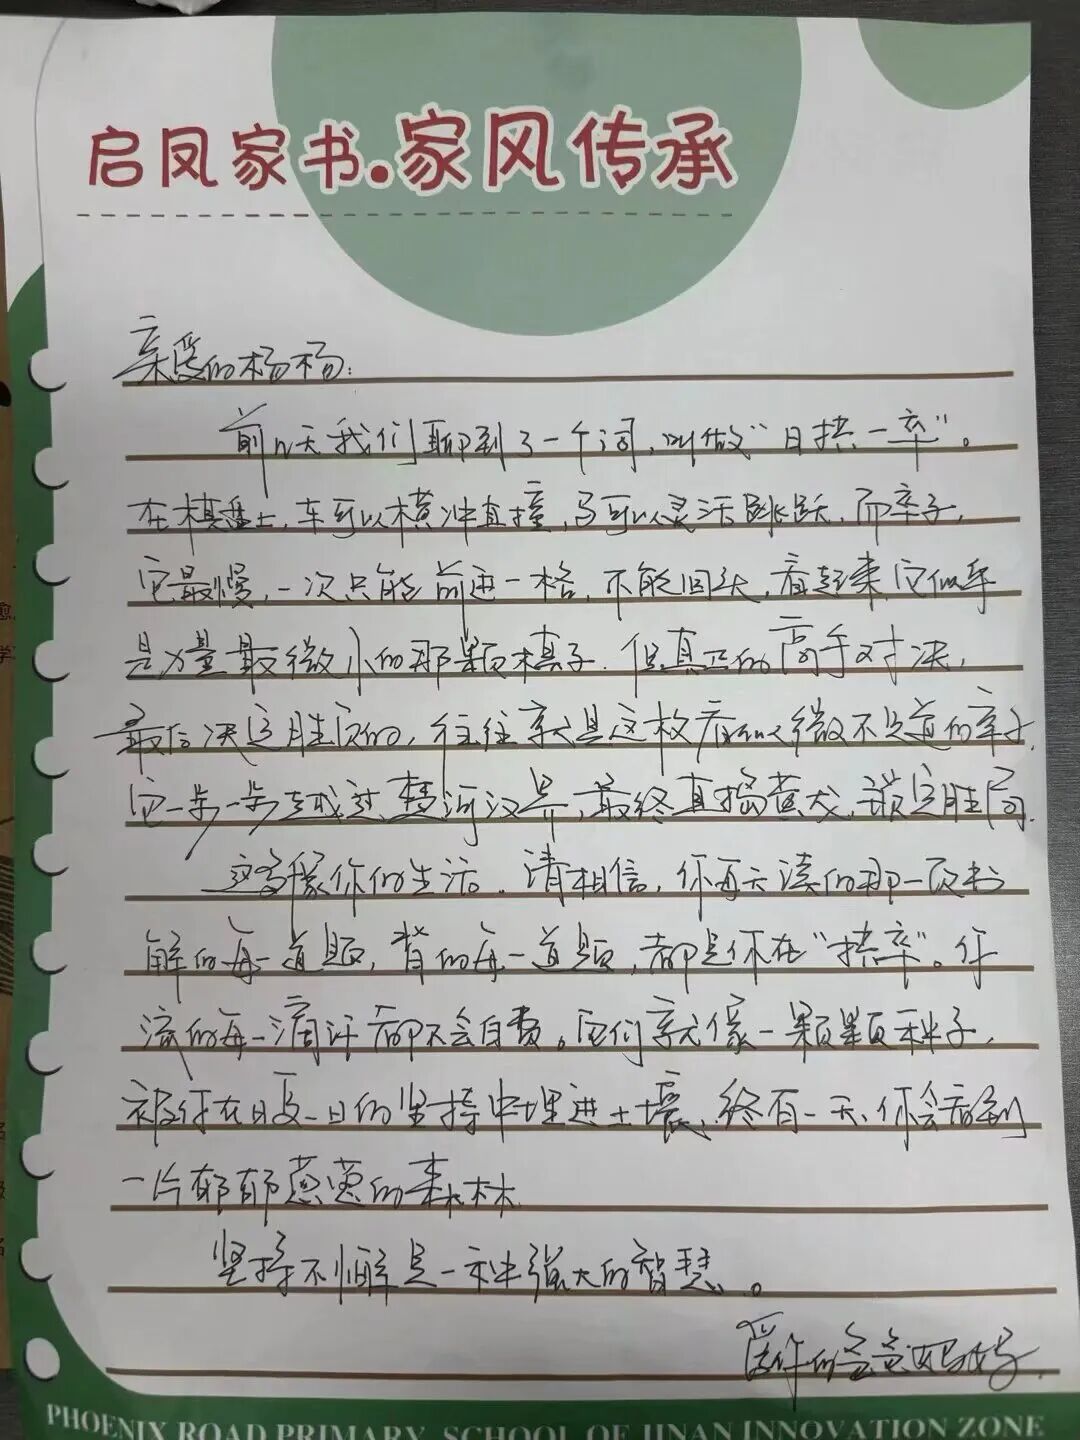 启凤家书.家风传承
亲爱的杨杨：
前几天我们聊到了一个词，叫做“日拱一卒”。
在棋盘上，车可以横冲直撞，马可以灵活跳跃，而卒子，
它最慢，一次只能前进一格，不能回头，看起来，它似乎
是力量最微小的那颗棋子。但真正的高手对决，
最后决定胜负的，往往就是这枚看似微不足道的卒子，
它一步一步越过楚河汉界，最终直捣黄龙，锁定胜局。
这多像你的生活。请相信，你每天读的那一页书
解的每一道题，背的每一道题，都是你在“拱卒”。你
流的每一滴汗都不会白费。它们就像一颗颗种子，
被你在日复一日的坚持中埋进土壤，终有一天，你会看到
一片郁郁葱葱的森林
坚持不懈是一种强大的智慧。
爱你的爸爸
PHOENIX ROAD PRIMARY SCHOOL OF JINAN INNOVATION ZONE